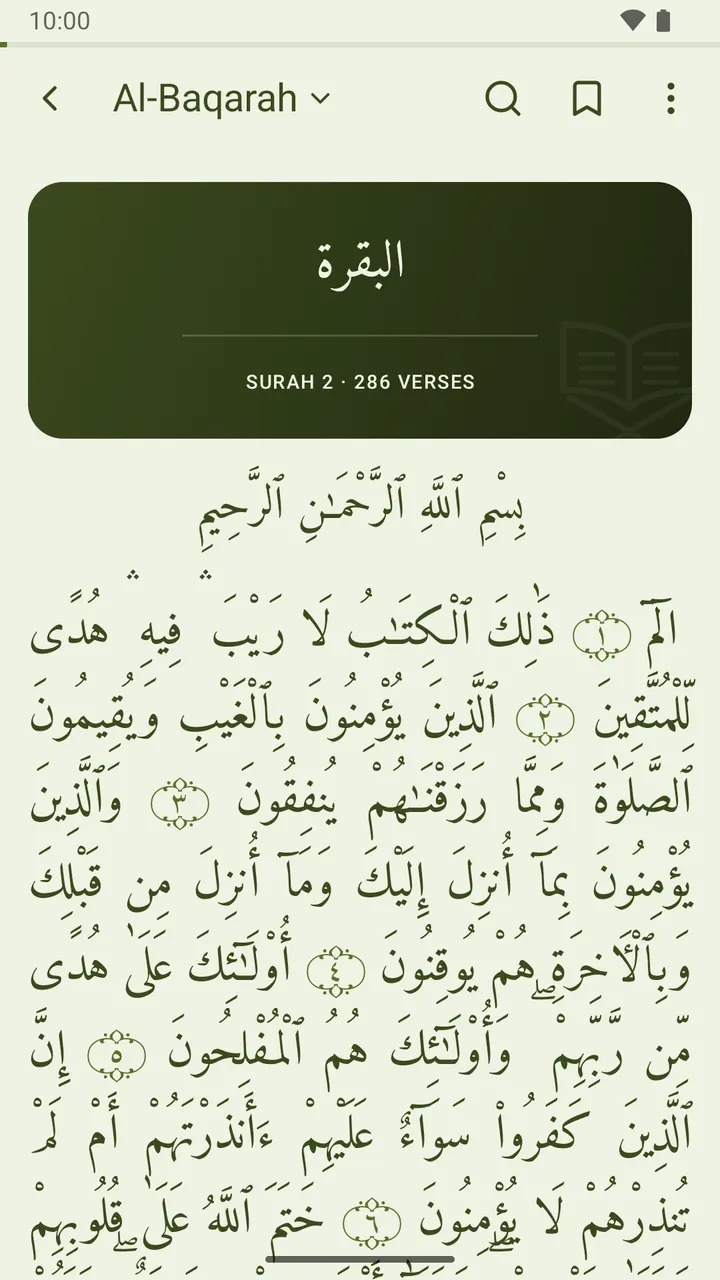 10:00
Al-Baqarah
البقرة
SURAH 2 · 286 VERSES
بِسْمِ ٱللَّهِ ٱلرَّحْمَـٰنِ ٱلرَّحِيمِ
الٓمٓ ١ ذَٰلِكَ ٱلْكِتَـٰبُ لَا رَيْبَ ۛ فِيهِ ۛ هُدًى
لِّلْمُتَّقِينَ ٢ ٱلَّذِينَ يُؤْمِنُونَ بِٱلْغَيْبِ وَيُقِيمُونَ
ٱلصَّلَوٰةَ وَمِمَّا رَزَقْنَـٰهُمْ يُنفِقُونَ ٣ وَٱلَّذِينَ
يُؤْمِنُونَ بِمَآ أُنزِلَ إِلَيْكَ وَمَآ أُنزِلَ مِن قَبْلِكَ
وَبِٱلْـَٔاخِرَةِ هُمْ يُوقِنُونَ ٤ أُو۟لَـٰٓئِكَ عَلَىٰ هُدًى
مِّن رَّبِّهِمْ ۖ وَأُو۟لَـٰٓئِكَ هُمُ ٱلْمُفْلِحُونَ ٥ إِنَّ
ٱلَّذِينَ كَفَرُوا۟ سَوَآءٌ عَلَيْهِمْ ءَأَنذَرْتَهُمْ أَمْ لَمْ
تُنذِرْهُمْ لَا يُؤْمِنُونَ ٦ خَتَمَ ٱللَّهُ عَلَىٰ قُلُوبِهِمْ